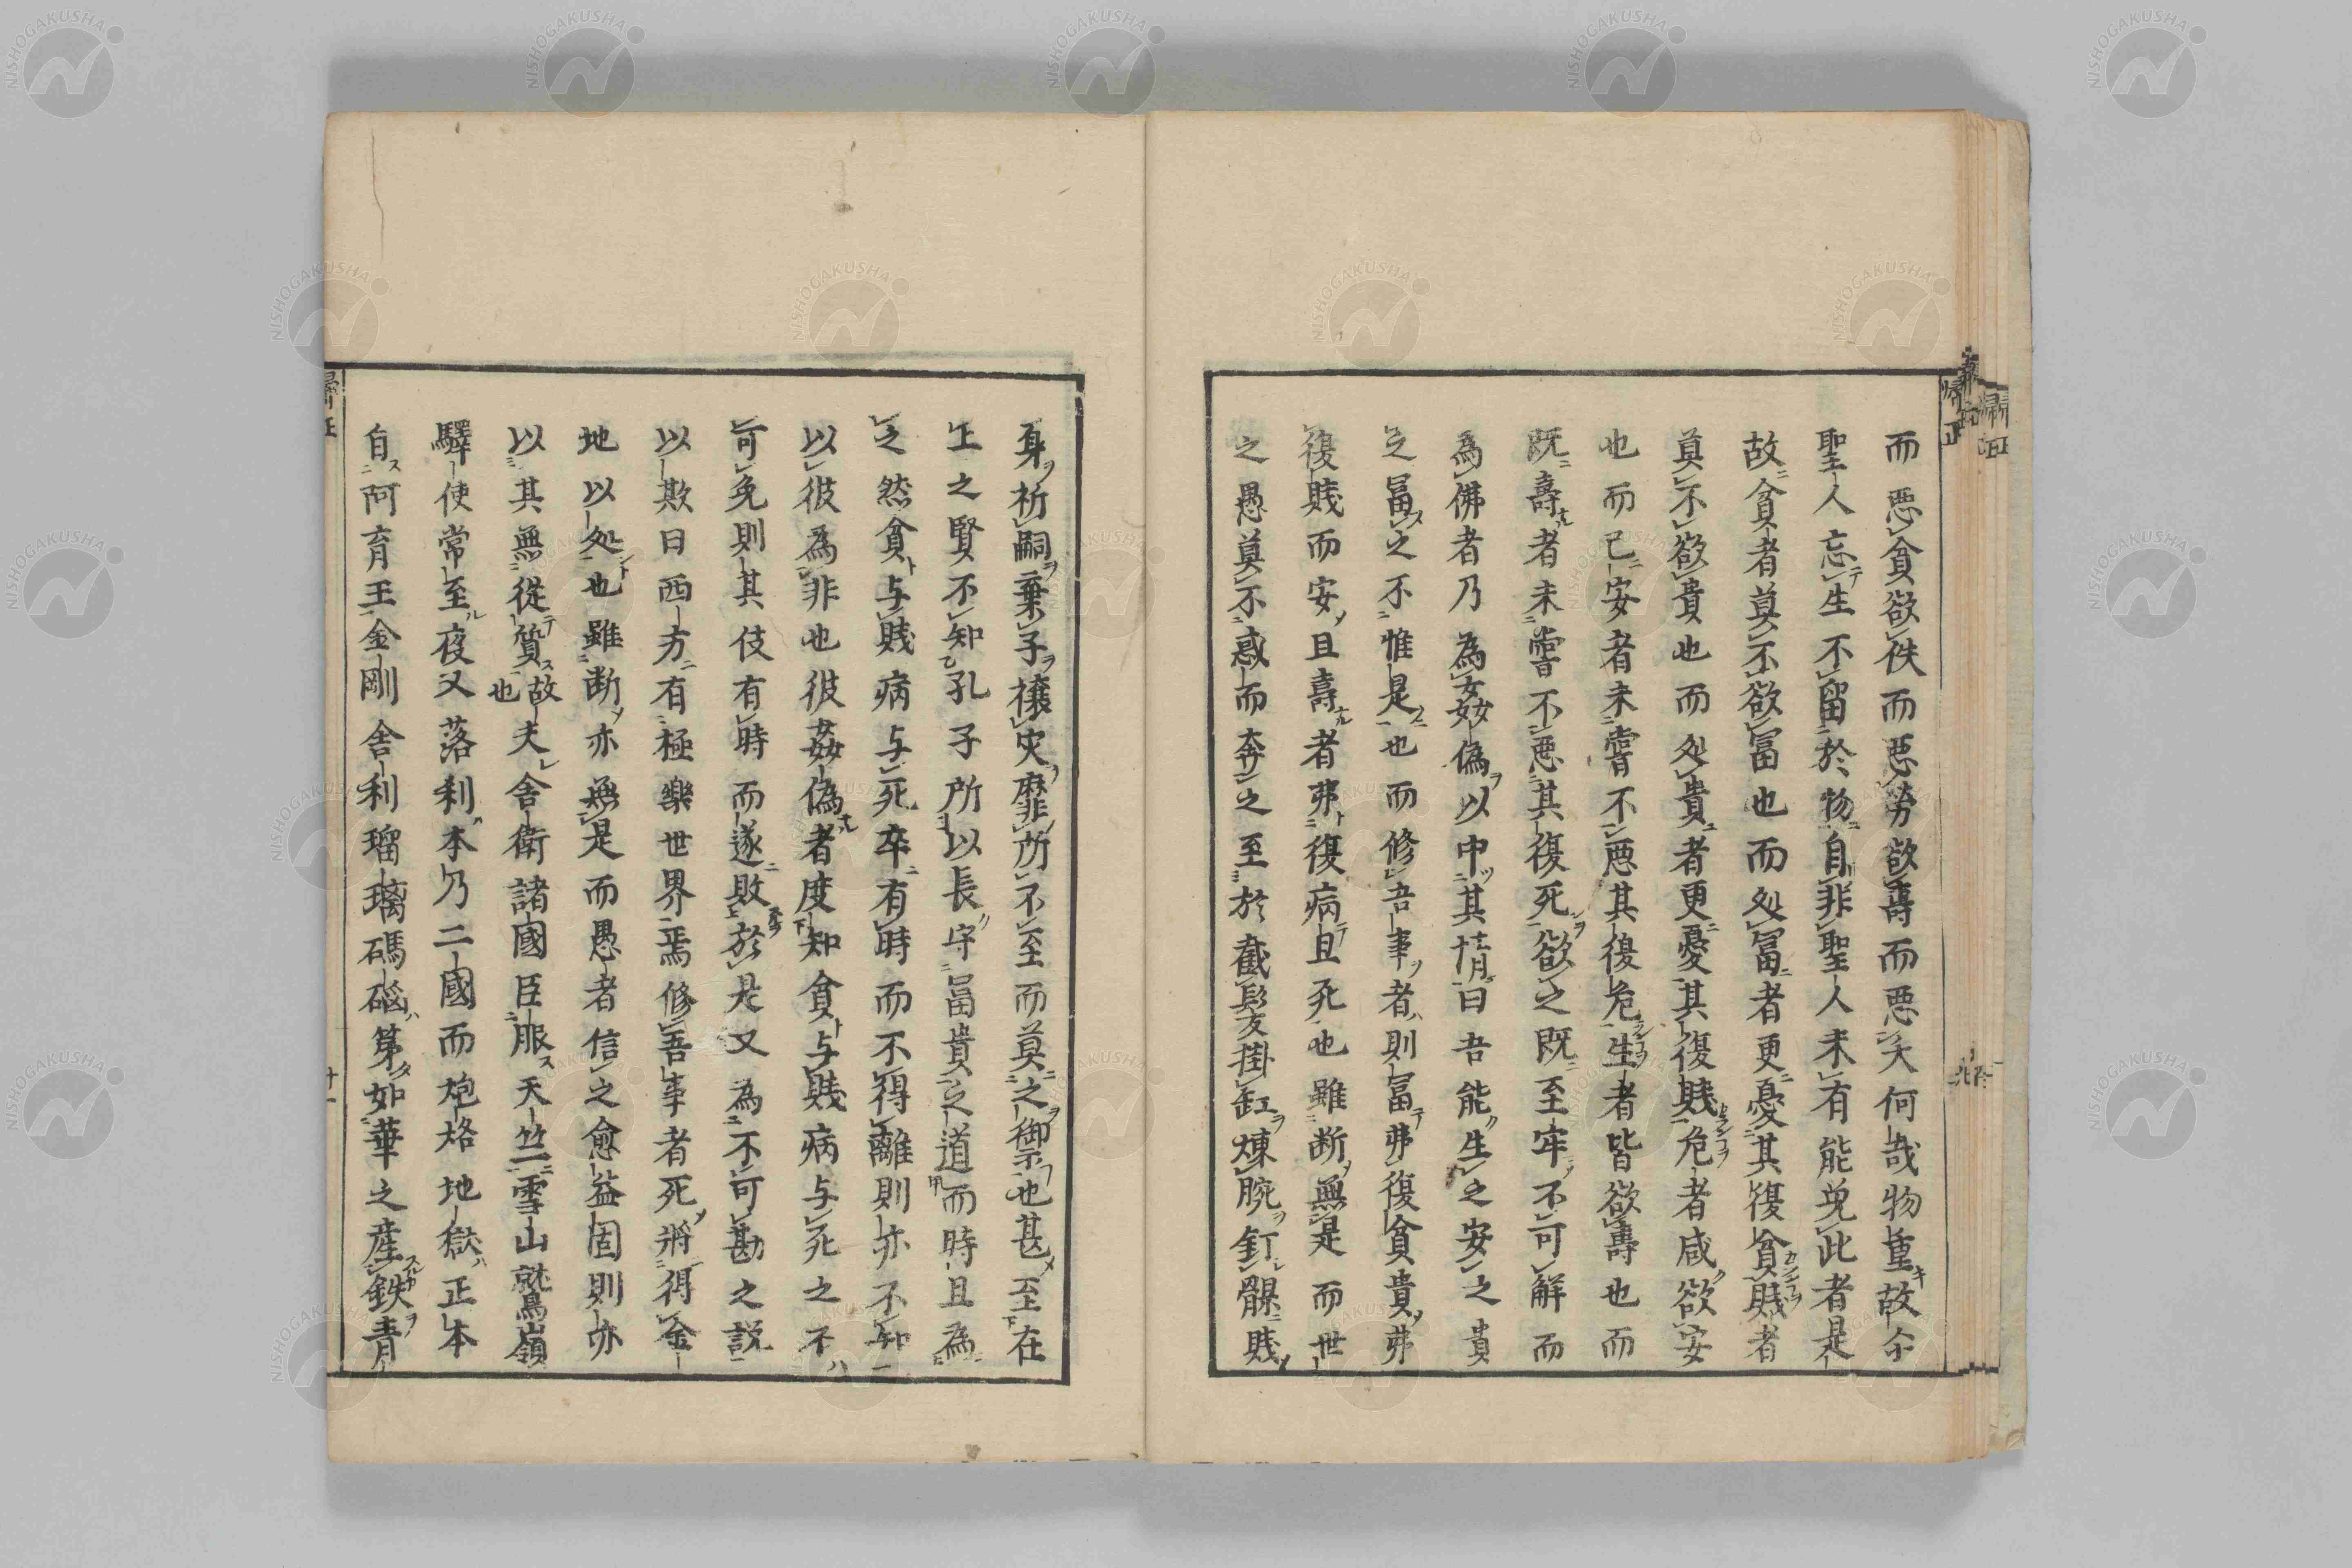 而悪貧欲佚而悪労欲寿而悪夭何哉物重故今
聖人忘生不留於物自非聖人未有能免此者是
故貧者莫不欲冨也而处冨者更憂其復貧賎者
莫不欲貴也而处貴者更憂其復賎危者咸欲安
也而已安者未甞不悪其復危生者皆欲寿也而
既壽者未甞不悪其復死欲之既至牢不可解而
為佛者乃為姦偽以中其情曰吾能生之安之貴
之冨之不惟是也而修吾事者則冨弗復貧貴弗
復賎而安且壽者弗復病且死也雖断無是而世
之愚莫不惑而奔之至於截髪掛缸煉腕釘髁賎
身祈嗣棄子禳灾靡所不至而莫之禦也甚至在
上之賢不知孔子所以長守冨貴之道而時且為
之然貧与賎病与死卒有時而不得離則亦不知
以彼為非也彼姦偽者度知貧与賎病与死之不
可免則其伎有時而遂敗於是又為不可勘之説
以欺曰西方有極樂世界焉修吾事者死將得金
地以処也雖断亦無是而愚者信之愈益固則亦
以其無從質故也夫舎衛諸國臣服天竺雪山鷲嶺
驛使常至夜叉落利本乃二國而炮烙地獄正本
自阿育王金剛舎利瑠璃碼碯第如華之産鉄青
帰正